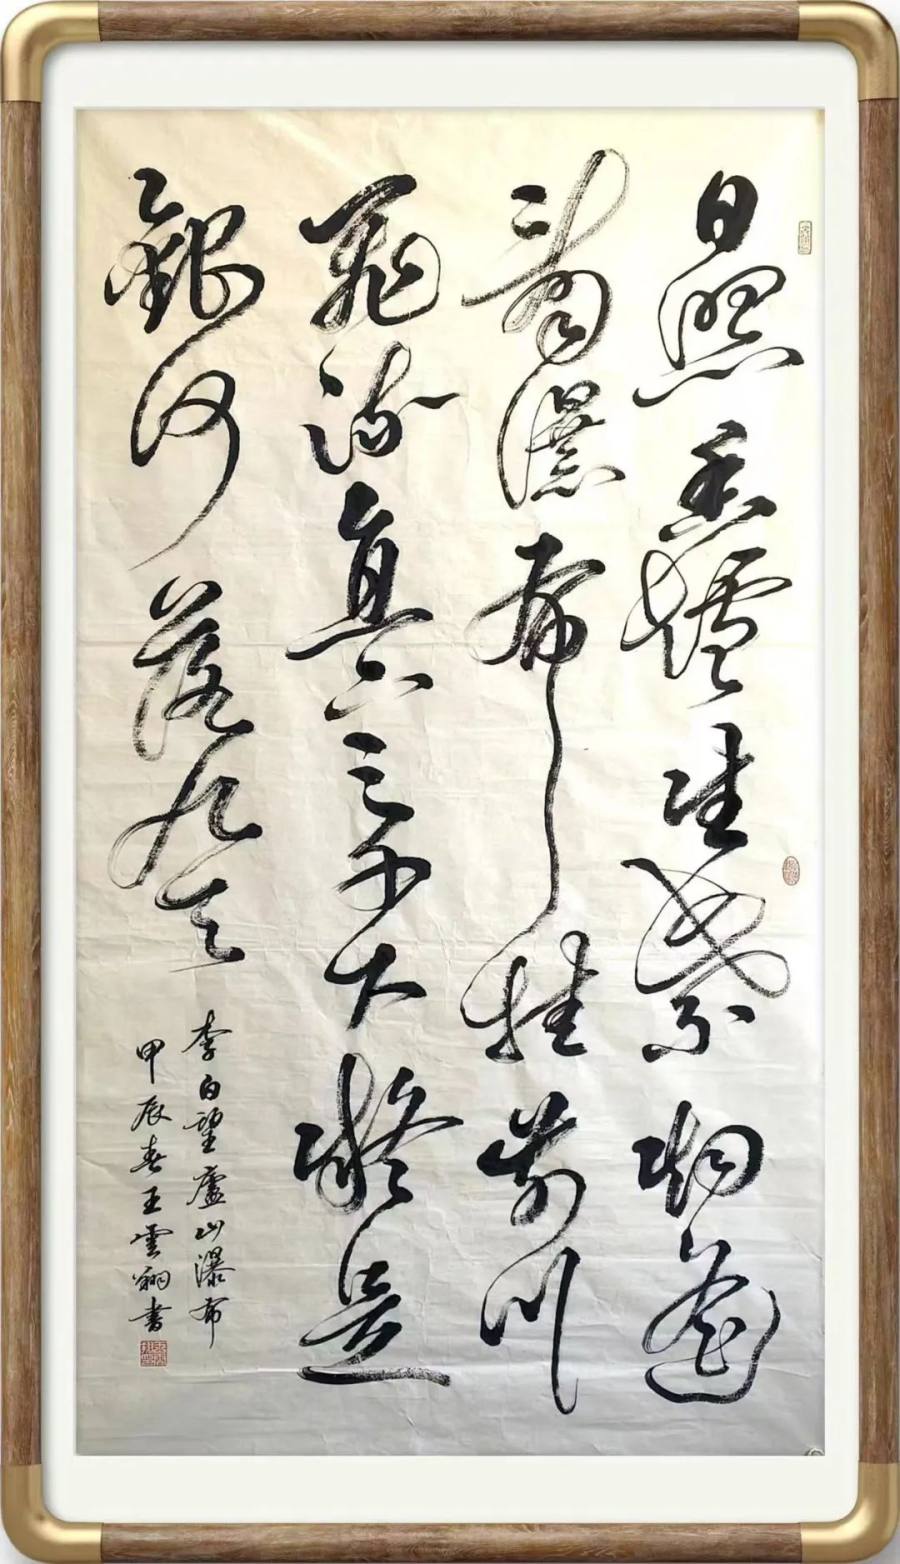 日照香爐生紫烟遙
看瀑布挂前川
飛流直下三千尺疑是
銀河落九天
李白望廬山瀑布
甲辰春王雲翔書